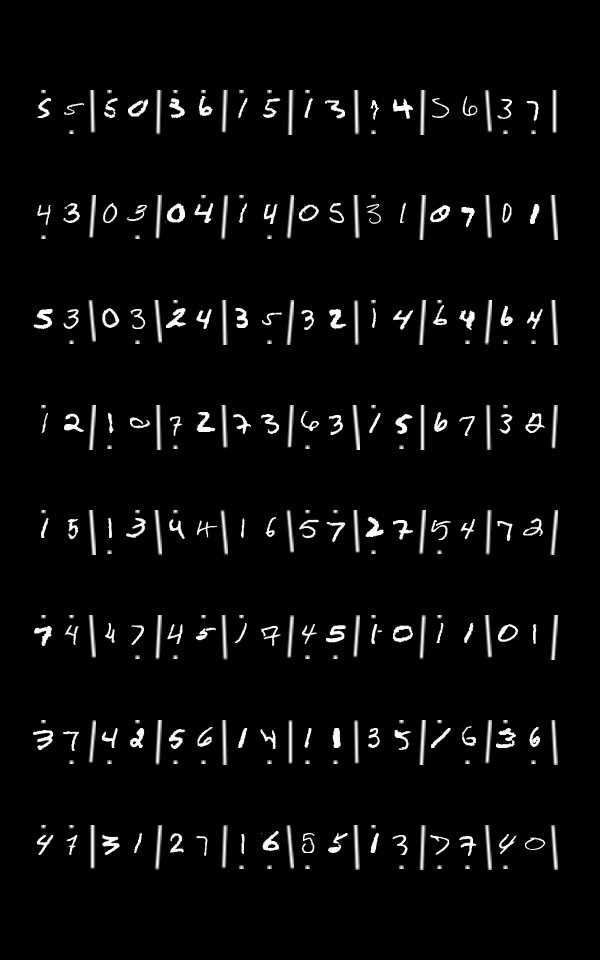 5 5 | 5 0 | 3 6 | 1 5 | 1 3 | 7 4 | 5 6 | 3 7 |
4 3 | 0 3 | 0 4 | 1 4 | 0 5 | 3 1 | 0 7 | 0 1 |
5 3 | 0 3 | 2 4 | 3 5 | 3 2 | 1 4 | 6 4 | 6 4 |
1 2 | 1 0 | 7 2 | 7 3 | 6 3 | 1 5 | 6 7 | 3 2 |
1 5 | 1 3 | 4 4 | 1 6 | 5 7 | 2 7 | 5 4 | 7 2 |
7 4 | 4 7 | 4 5 | 1 7 | 4 5 | 1 0 | 1 1 | 0 1 |
3 7 | 4 2 | 5 6 | 1 4 | 1 1 | 3 5 | 1 6 | 3 6 |
4 7 | 3 1 | 2 7 | 1 6 | 5 5 | 1 3 | 7 7 | 4 0 |